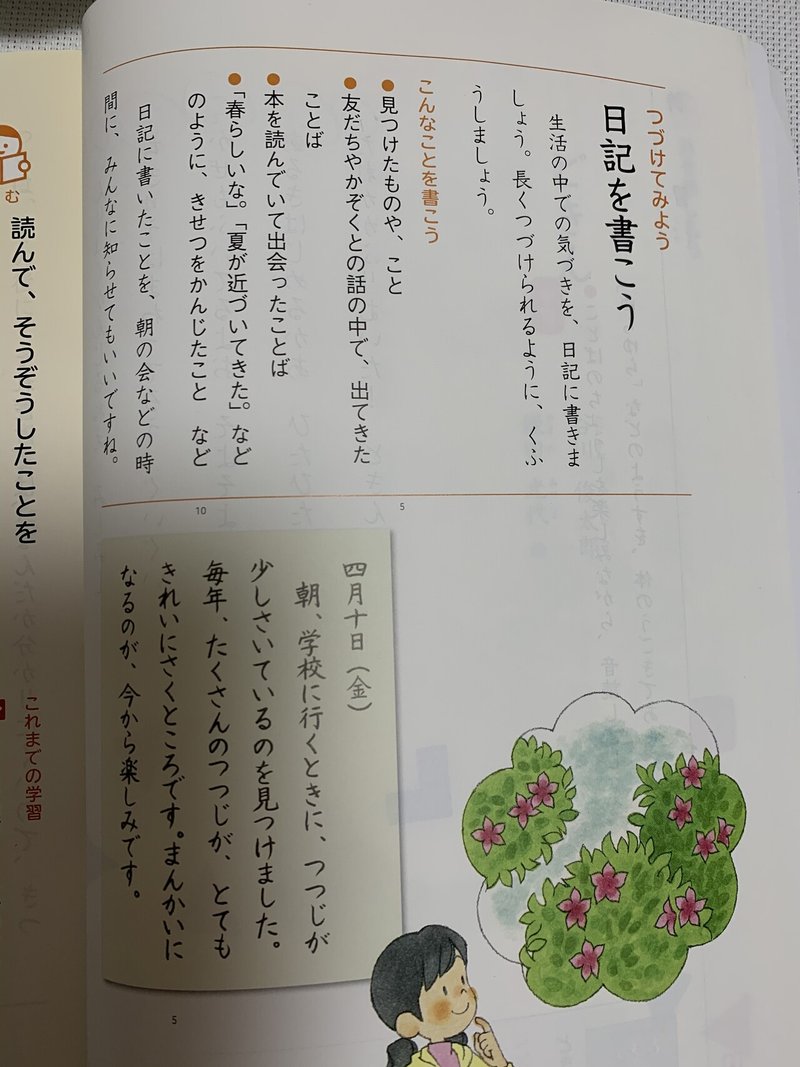 つづけてみよう
日記を書こう
生活の中での気づきを、日記に書きま
しょう。長くつづけられるように、くふ
うしましょう。
こんなことを書こう
●見つけたものや、こと
●友だちやかぞくとの話の中で、出てきた
ことば
●本を読んでいて出会ったことば
●「春らしいな。」「夏が近づいてきた。」など
のように、きせつをかんじたこと など
日記に書いたことを、朝の会などの時
間に、みんなに知らせてもいいですね。
5
10
四月十日(金)
朝、学校に行くときに、つつじが
少しさいているのを見つけました。
毎年、たくさんのつつじが、とても
きれいにさくところです。まんかいに
なるのが、今から楽しみです。
5
む
読んで、そうぞうしたことを
これまでの学習